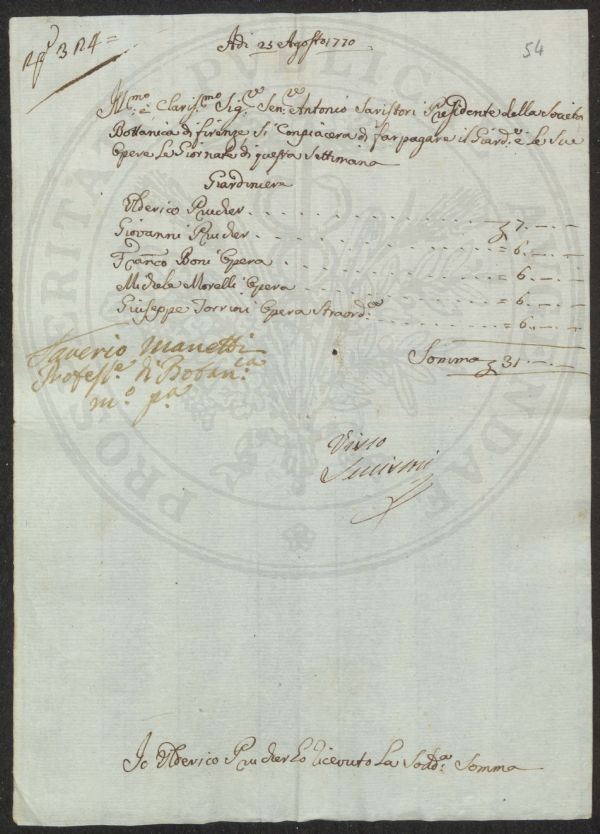 Adi 25 Agosto 1770
54
Ill.mo e Clariss.mo Sig.re Sen.re Antonio Saristori Presidente della Societa
Bottanica di Firenze Si Conpiacera di far pagare il Giard.e e Le Sue
Opere Le Giornate di questa Settimana
Giardiniera
Ulderico Prucher 7.-.-
Giovanni Prucher = 6.-.-
Franco Boni Opera = 6.-.-
Michele Morelli Opera = 6.-.-
Giuseppe Torrini Opera Straord.a = 6.-.-
Somma 31.-.-
Saverio Manetti
Profess.e di Botan.ca
m.o p.a
Visto
Io Ulderico Prucher ho ricevuto La Sodd.a Somma
PROSPERITATI PUBLICAE AUGENDAE